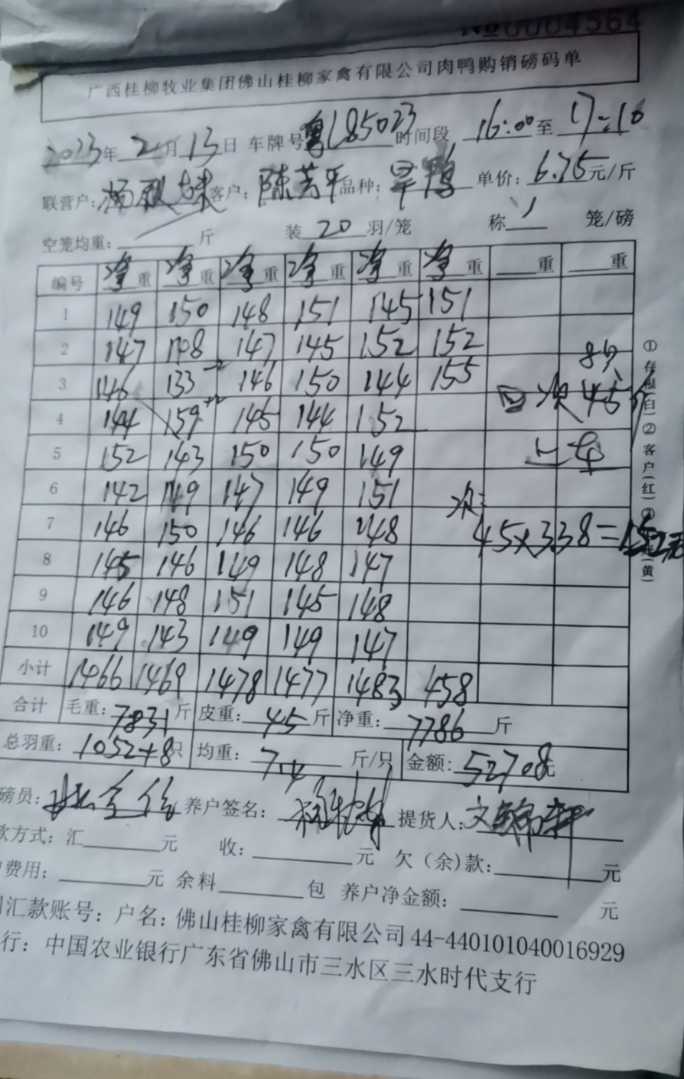 №0004564
广西桂柳牧业集团佛山桂柳家禽有限公司肉鸭购销磅码单
2023年2月13日 车牌号粤L85023时间段 16:00至17:10
联营户: 客户:陈芳平品种:旱鸭 单价:6.75元/斤
空笼均重: 斤 装20羽/笼 称1笼/磅
编号 净重 净重 净重 净重 净重 净重 重 重
1 149 150 148 151 145 151
2 147 148 147 145 152 152
3 146 133 146 150 144 155
4 144 159 145 144 152
回次45
5 152 143 150 150 149
上车
6 142 149 147 149 151
7 146 150 146 146 148
45×338=
8 145 146 149 148 147
9 146 148 151 145 148
10 149 143 149 149 147
小计 1466 1469 1478 1477 1483 458
合计 毛重:7831斤 皮重:45斤 净重:7786斤
总羽重:1052+8只 均重:7.4斤/只 金额:52708元
磅员: 养户签名: 提货人:
款方式:汇 元 收: 元 欠(余)款: 元
费用: 元 余料 包 养户净金额: 元
汇款账号:户名:佛山桂柳家禽有限公司44-440101040016929
行:中国农业银行广东省佛山市三水区三水时代支行
①存根(白)②客户(红)③(黄)